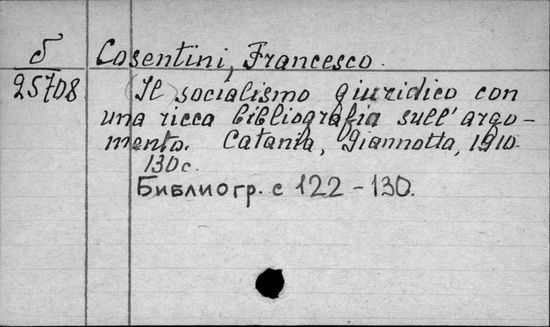 б Cosentini, Francesco.
25708 Il socialismo giuridico con
una ricca bibliografia sull' argo-
mento. Catania, Giannotta, 1910
130 с.
Библиогр. с 122-130.